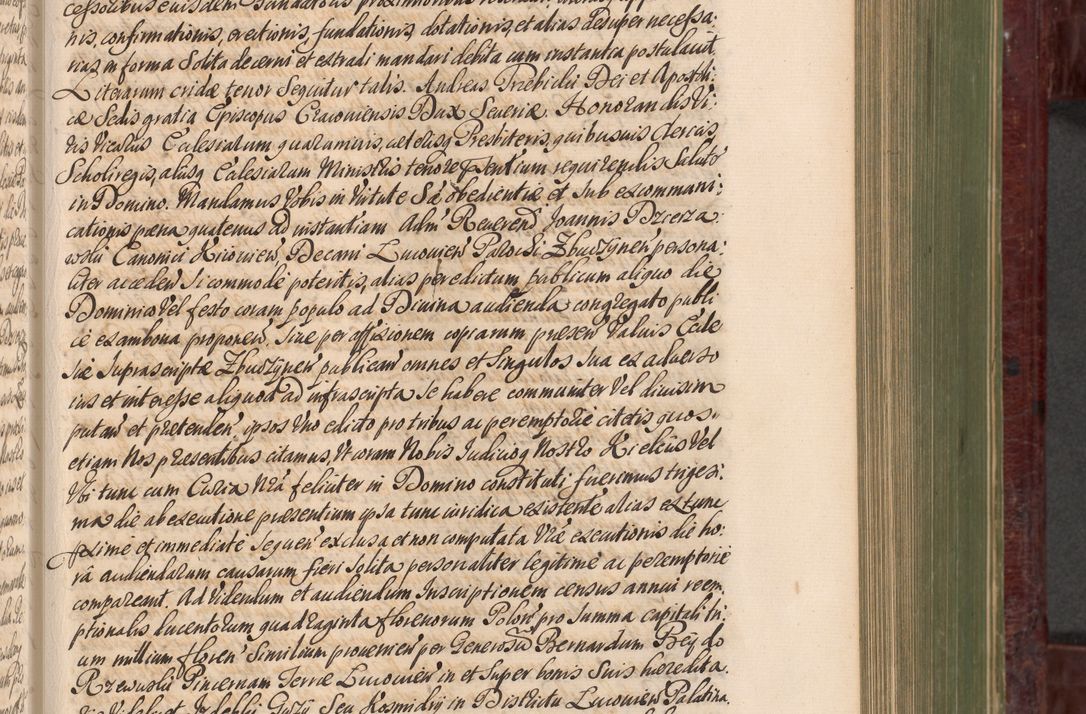 nis, confirmationis, erectionis, fundationis, dotationis, et alias desuper necessa:
rias, in forma Solita decerni et extradi mandari debita cum instantia postulavit
Literarum cridæ tenor Sequitur talis. Andreas Trzebicki Dei et Apostoli:
cæ Sedis gratia Episcopus Cracoviensis Dux Severiæ. Honorandis Vi:
ris Vicariis Ecclesiarum quarumvis, cæterisq Presbiteris, quibusvis Clericis,
Scholiregis, aliisq Ecclesiarum Ministris tenore pntium requirendis Salutē
in Domino. Mandamus Vobis in Virtute Sæ obedientiæ et Sub excommuni:
cationis pæna quatenus ad instantiam Adm Reverend Joannis Dzierza
wski Canonici Kijovien, Decani Lucovien Parochi Zbuczynen persona:
liter acceden Si commode poteritis, alias per edictum publicum aliquo die
Dominico Vel festo coram populo ad Divina audienda congregato publi
cè ex ambona proponen, Sive per affixionem copiarum presen Valvis Eccle
siæ Suprascriptæ Zbuczynen publicam omnes et Singulos Sua ex adverso
ius et interesse aliquod ad infrascripta Se habere communiter Vel divisim
putan et prætenden, ipsos Vno edicto pro tribus ac peremptoriè citetis quos.
etiam Nos præsentibus citamus, Vt coram Nobis Iudiciog Nostro Kielciis Vel
Vbi tunc cum Curia Nrâ feliciter in Domino constituti fuerimus trigesi:
ma die ab executione præsentium ipsa tunc iuridica existente alias ex tunc
pximè et immediatè Sequen exclusa et non computata Vræ executionis die ho:
râ audiendarum causarum fieri Solita personaliter legitimè ac peremptoriè
compareant. Ad Videndum et audiendum Inscriptionem census annui reem
ptionalis ducentorum quadraginta florenorum Polon pro Summa capitali tri:
um millium floren Similium provenien per Generosū Bernardum Rey do
Rzewuski Pincernam Terræ Lucovien in et Super bonis Suis hæredita.